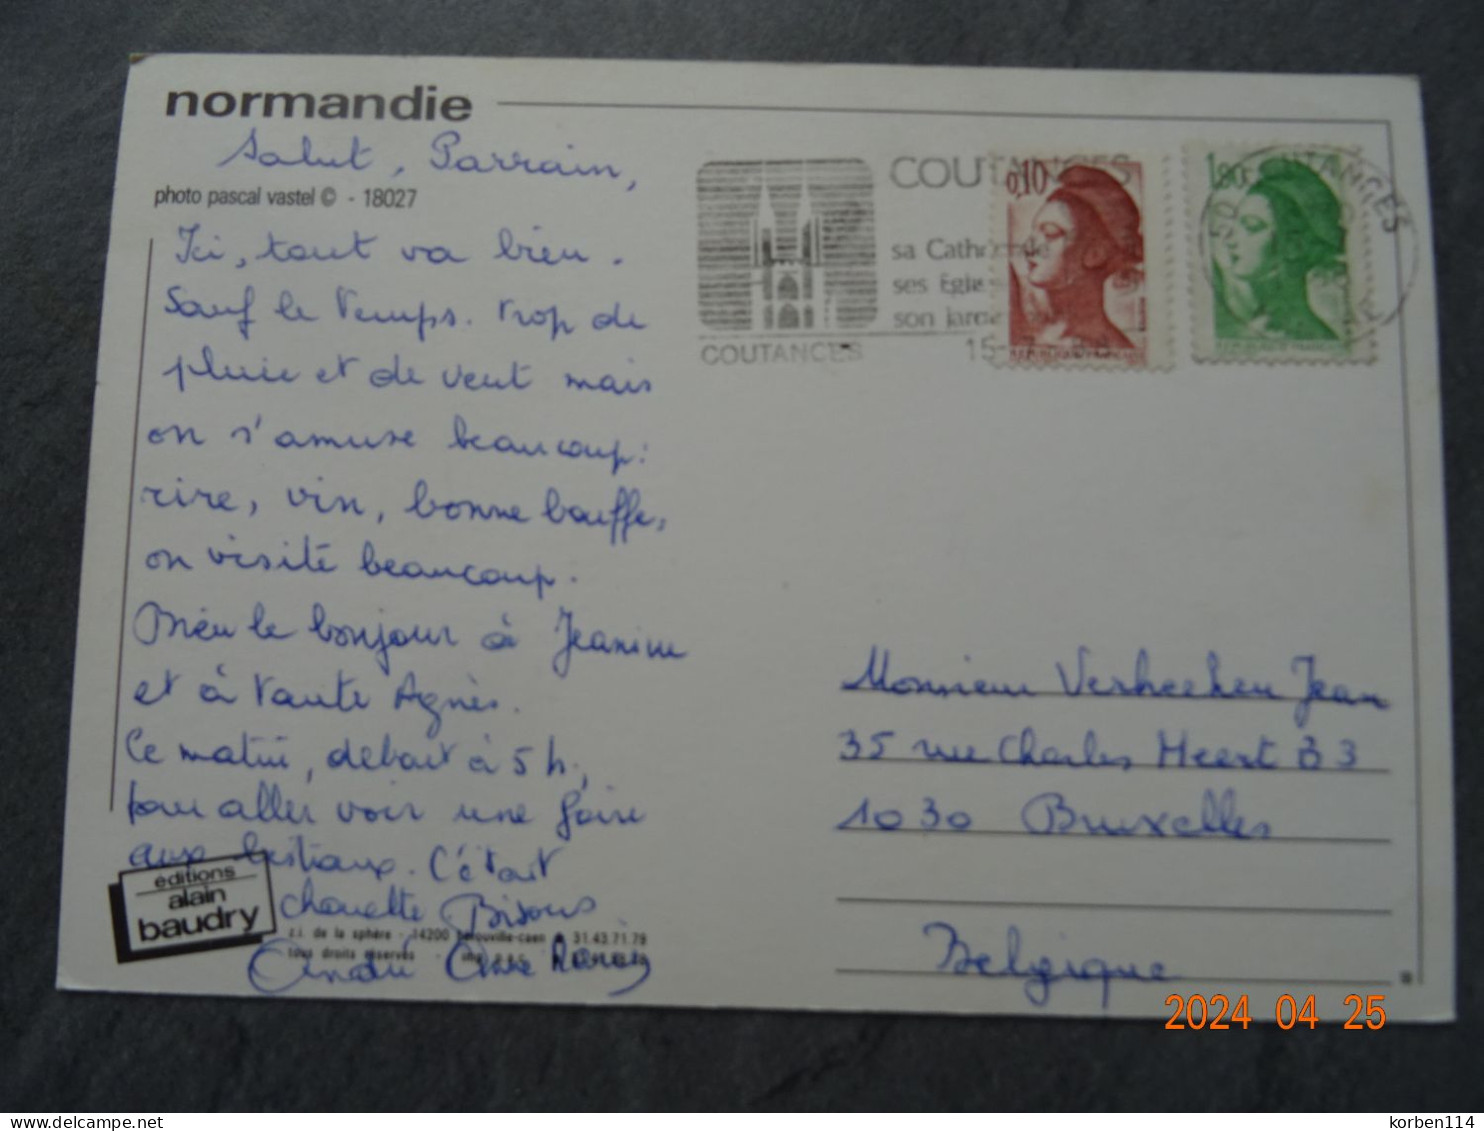 normandie
Salut, Parrain,
photo pascal vastel © - 18027
Ici, tout va bien.
Sauf le temps. trop de
pluie et de vent mais
on s'amuse beaucoup:
rire, vin, bonne bouffe,
on visite beaucoup.
bien le bonjour à Jeanine
et à tante Agnès.
Ce matin, debout à 5 h,
pour aller voir une foire
aux bestiaux. C'était
chouette Bisous
André Anne
éditions
alain
baudry
z.i. de la sphère - 14200 hérouville-caen 31.43.71.78
tous droits réservés
COUTANCES
COUTANCES
sa Cathédrale
ses Égli
son jard
15
0,10
1,80
50 COUTANCES
Monsieur Verheeken Jean
35 rue Charles Meert B3
1030 Bruxelles
Belgique
2024 04 25
delcampe.net
korben114